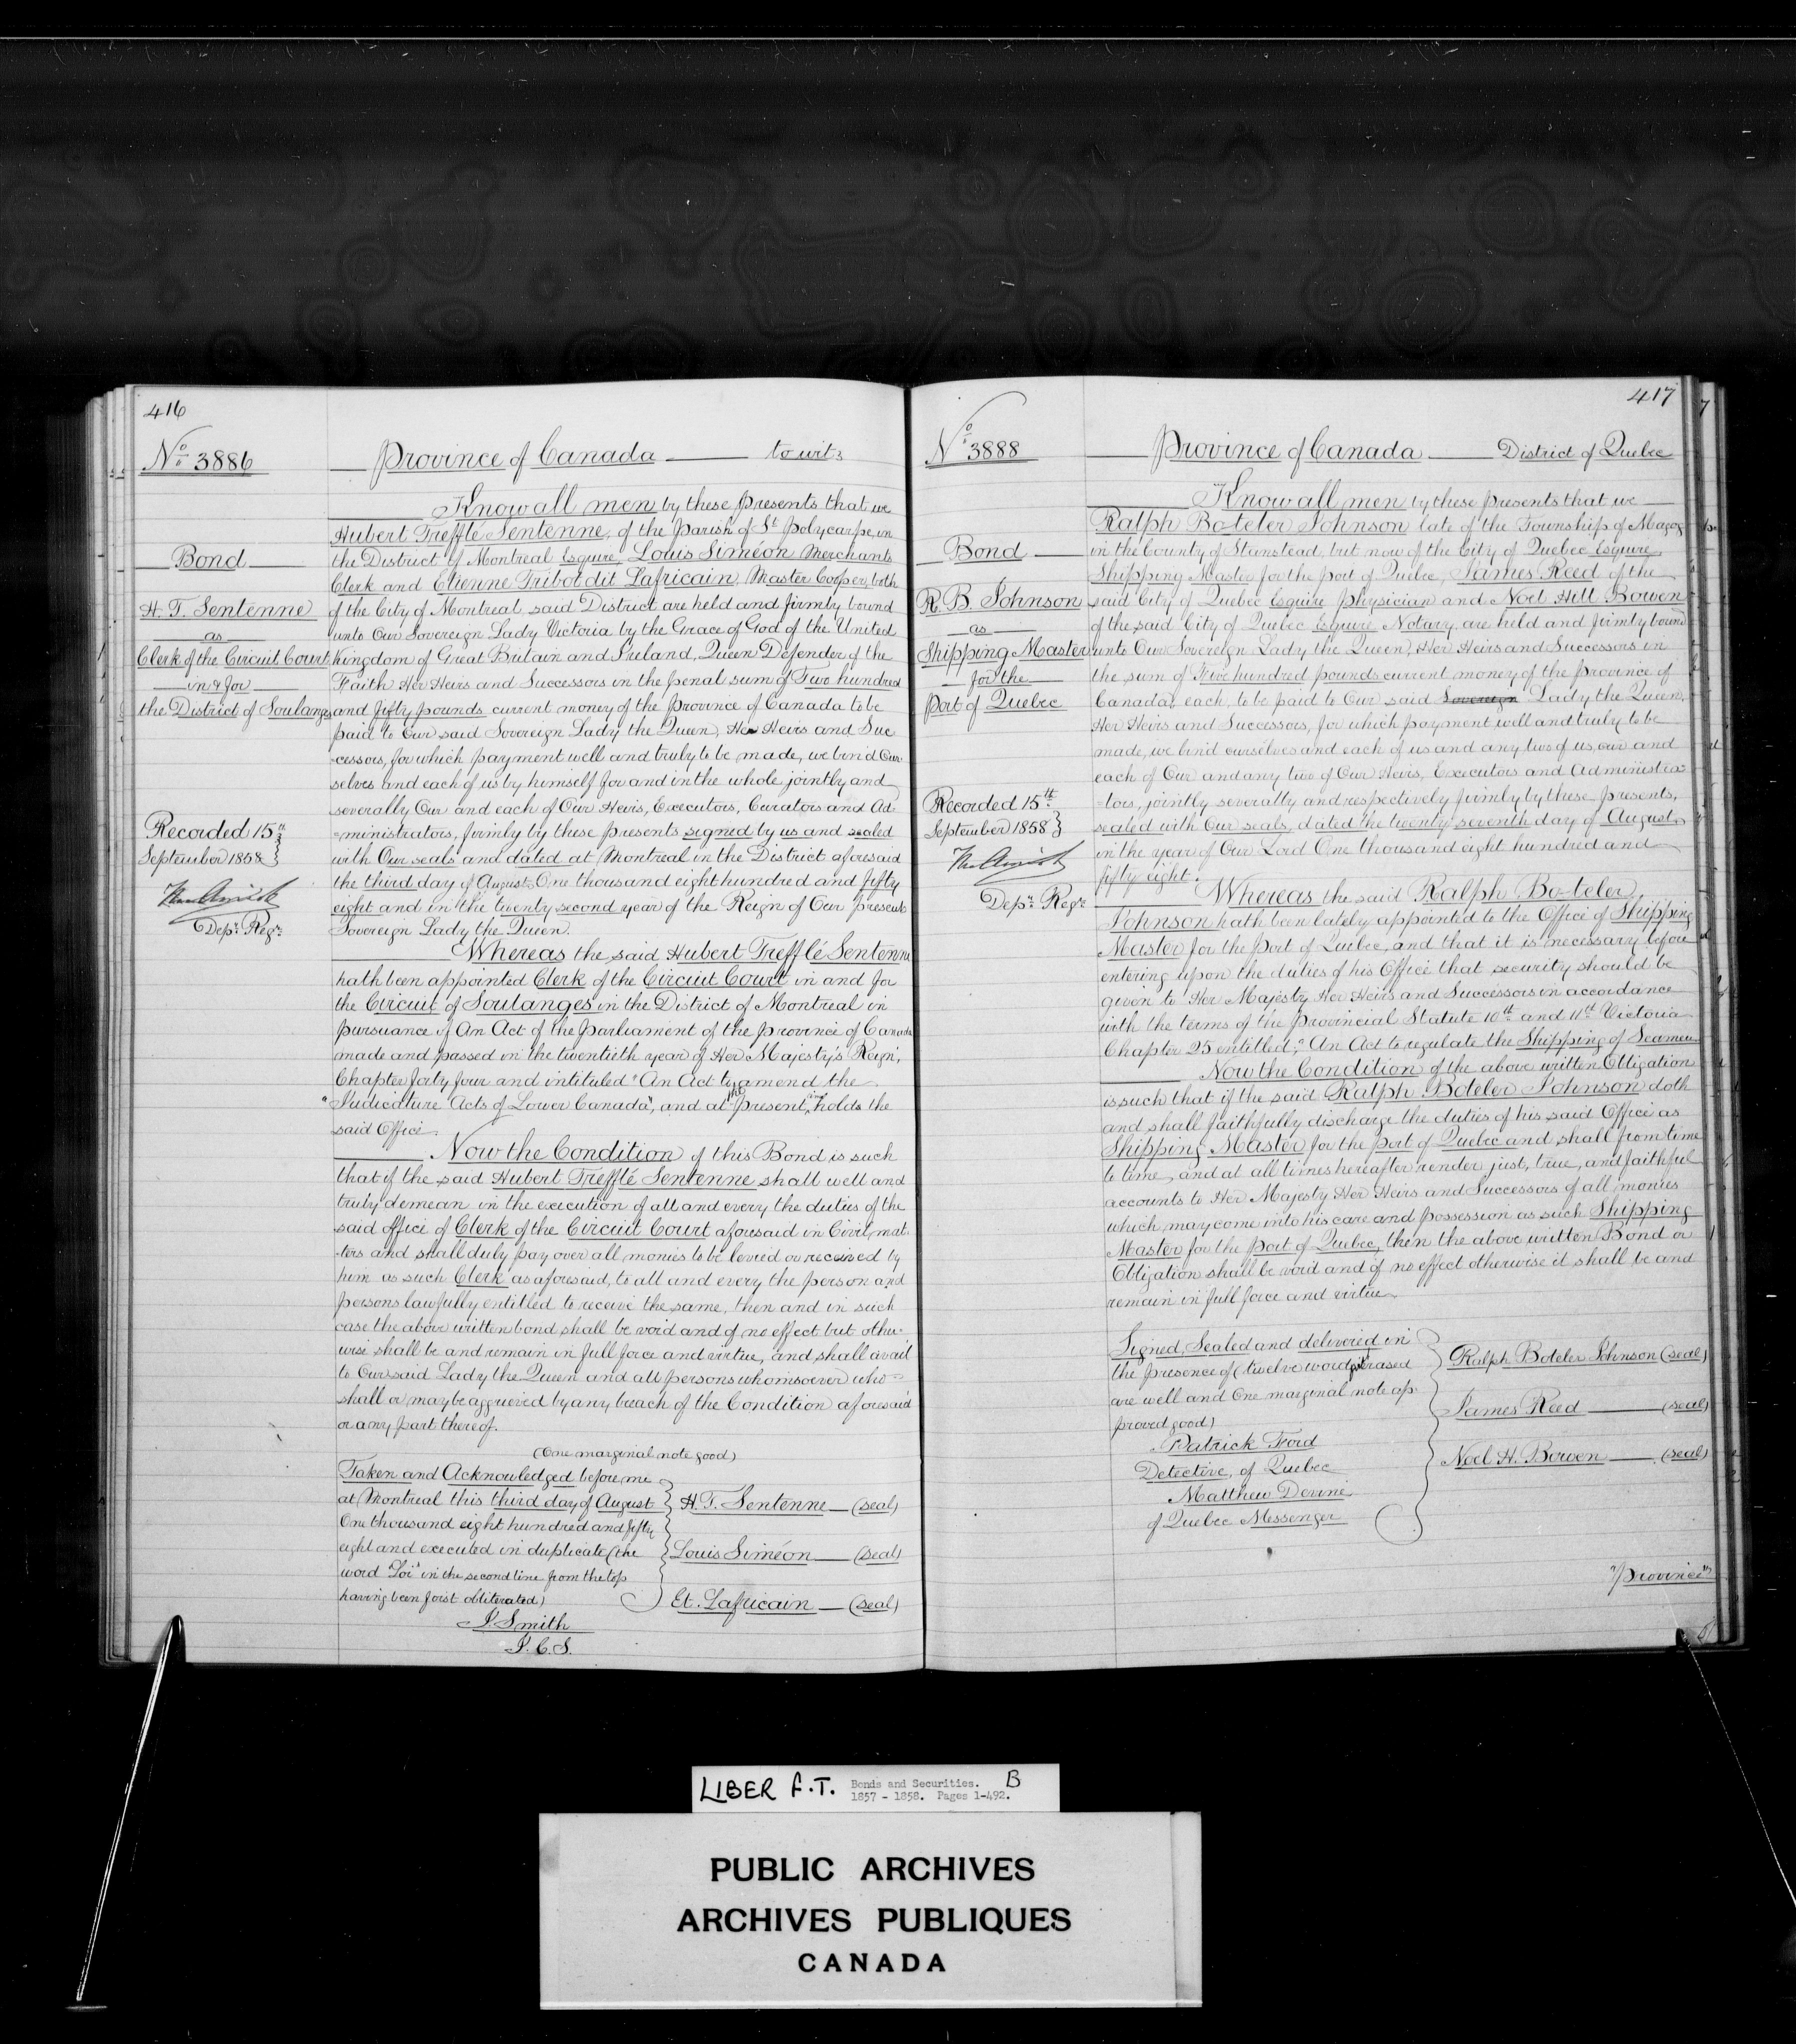 416
No. 3886
Province of Canada to wit:
Know all men by these Presents that we
Hubert Trefflé Sentenne, of the Parish of St. Polycarpe, in
Bond
the District of Montreal Esquire, Louis Siméon Merchants
Clerk and Etienne Tribot dit Lafricain, Master Cooper, both
H. T. Sentenne
of the City of Montreal said District are held and firmly bound
as
unto Our Sovereign Lady Victoria by the Grace of God of the United
Clerk of the Circuit Court
Kingdom of Great Britain and Ireland, Queen Defender of the
in & for
Faith Her Heirs and Successors in the penal sum of Two hundred
the District of Soulanges
and fifty pounds current money of the Province of Canada to be
paid to Our said Sovereign Lady the Queen, Her Heirs and Suc
-cessors, for which payment well and truly to be made, we bind Our
selves and each of us by himself for and in the whole jointly and
severally Our and each of Our Heirs, Executors, Curators and Ad
Recorded 15th
=ministrators, firmly by these Presents signed by us and sealed
September 1858
with Our seals and dated at Montreal in the District aforesaid
the third day of August One thousand eight hundred and fifty
eight and in the twenty second year of the Reign of Our present
Depy. Regr.
Sovereign Lady the Queen.
Whereas the said Hubert Trefflé Sentenne
hath been appointed Clerk of the Circuit Court in and for
the Circuit of Soulanges in the District of Montreal in
pursuance of An Act of the Parliament of the Province of Canada
made and passed in the twentieth year of Her Majesty's Reign,
Chapter forty four and intituled "An Act to amend the
"Judicature Acts of Lower Canada", and at the present, holds the
said Office.
Now the Condition of this Bond is such
that if the said Hubert Trefflé Sentenne shall well and
truly demean in the execution of all and every the duties of the
said office of Clerk of the Circuit Court aforesaid in Civil mat-
-ters and shall duly pay over all monies to be levied or received by
him as such Clerk as aforesaid, to all and every the person and
persons lawfully entitled to receive the same, then and in such
case the above written bond shall be void and of no effect but other-
wise shall be and remain in full force and virtue, and shall avail
to Our said Lady the Queen and all persons whomsoever who=
shall or may be aggrieved by any breach of the Condition aforesaid
or any part thereof.
(One marginal note good)
Taken and Acknowledged before me
at Montreal this third day of August
One thousand eight hundred and fifty
eight and executed in duplicate (the
word "Loi" in the second line from the top
having been first obliterated)
J. Smith
J. C. S.
H. T. Sentenne (seal)
Louis Siméon (seal)
Et. Lafricain (seal)
417
No. 3888
Province of Canada District of Quebec
Know all men by these Presents that we
Ralph Boteler Johnson late of the Township of Magog
Bond
in the County of Stanstead, but now of the City of Quebec Esquire,
Shipping Master for the Port of Quebec, James Reed of the
R. B. Johnson
said City of Quebec Esquire Physician and Noel Hill Bowen
as
of the said City of Quebec Esquire Notary are held and firmly bound
Shipping Master
unto Our Sovereign Lady the Queen, Her Heirs and Successors in
for the
the sum of Five hundred pounds current money of the Province of
Port of Quebec
Canada, each, to be paid to Our said Sovereign Lady the Queen,
Her Heirs and Successors, for which payment well and truly to be
made, we bind ourselves and each of us and any two of us, our and
each of Our and any two of Our Heirs, Executors and Administra-
Recorded 15th
=tors, jointly severally and respectively firmly by these Presents,
September 1858
sealed with Our seals, dated the twenty seventh day of August
in the year of Our Lord One thousand eight hundred and
fifty eight.
Depy. Regr.
Whereas the said Ralph Boteler
Johnson hath been lately appointed to the Office of Shipping
Master for the Port of Quebec, and that it is necessary before
entering upon the duties of his Office that security should be
given to Her Majesty Her Heirs and Successors in accordance
with the terms of the Provincial Statute 10th and 11th Victoria
Chapter 25 entitled; "An Act to regulate the Shipping of Seamen
Now the Condition of the above written Obligation
is such that if the said Ralph Boteler Johnson doth
and shall faithfully discharge the duties of his said Office as
Shipping Master for the Port of Quebec and shall from time
to time, and at all times hereafter render just, true, and faithful
accounts to Her Majesty Her Heirs and Successors of all monies
which may come into his care and possession as such Shipping
Master for the Port of Quebec, then the above written Bond or
Obligation shall be void and of no effect otherwise it shall be and
remain in full force and virtue.
Signed, Sealed and delivered in
the presence of (twelve words erased
are well and One marginal note ap-
proved good)
Patrick Ford
Detective, of Quebec
Matthew Devine
of Quebec Messenger
Ralph Boteler Johnson (seal)
James Reed (seal)
Noel H. Bowen (seal)
"Province"
LIBER F.T. Bonds and Securities. B
1857 - 1858. Pages 1-492.
PUBLIC ARCHIVES
ARCHIVES PUBLIQUES
CANADA